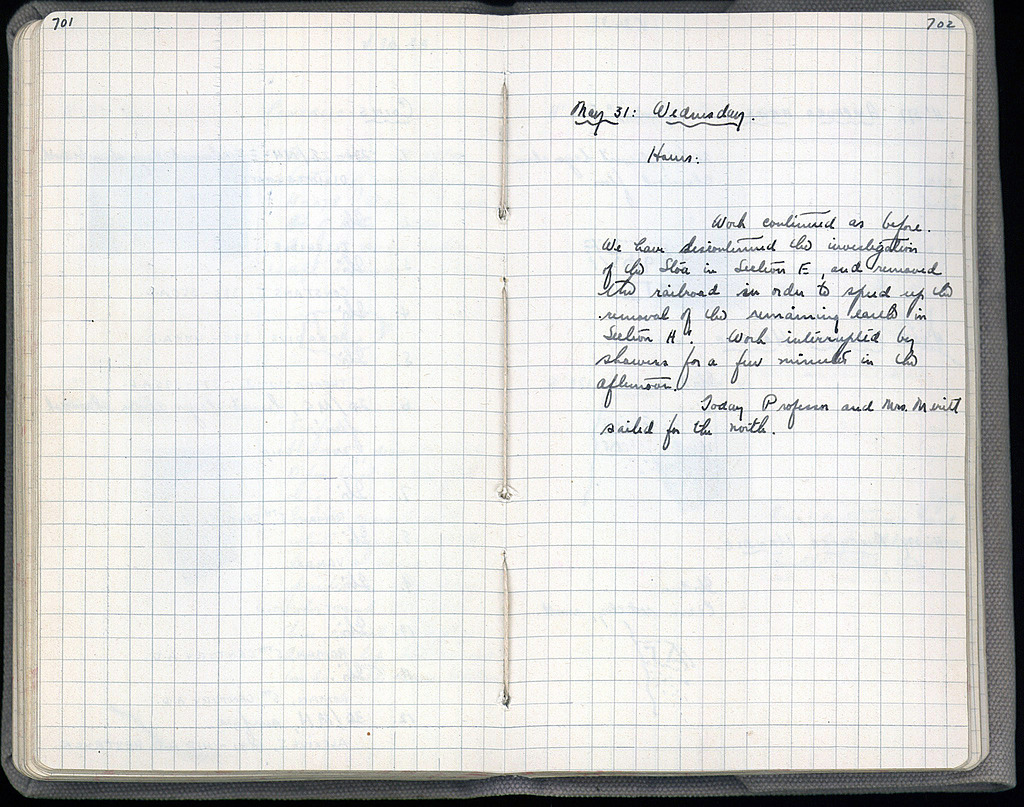 701
702
May 31: Wednesday.
Hours:
Work continued as before.
We have discontinued the investigation
of the Stoa in Section E, and removed
the railroad in order to speed up the
removal of the remaining earth in
Section H'. Work interrupted by
showers for a few minutes in the
afternoon.
Today Professor and Mrs. Meritt
sailed for the north.